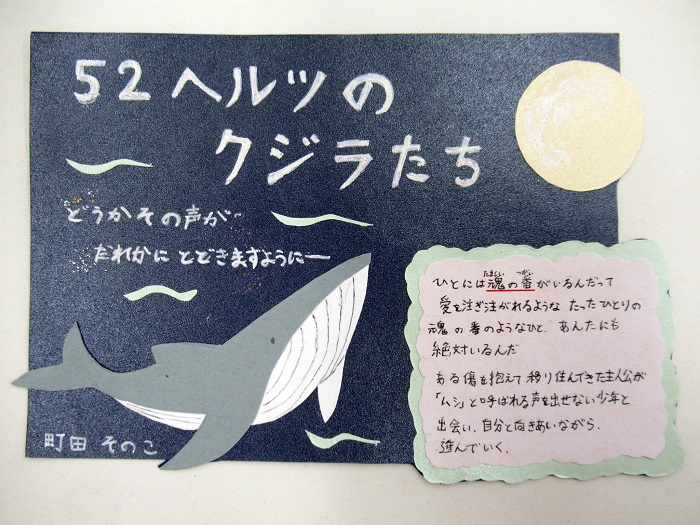 52ヘルツの
クジラたち
どうかその声が
だれかに とどきますようにー
町田 そのこ
たましい つがい
ひとには魂の番がいるんだって
愛を注ぎ注がれるような たったひとりの
魂の番のようなひと。あんたにも
絶対いるんだ
ある傷を抱えて移り住んできた主人公が
「ムシ」と呼ばれる声を出せない少年と
出会い、自分と向きあいながら、
進んでいく。